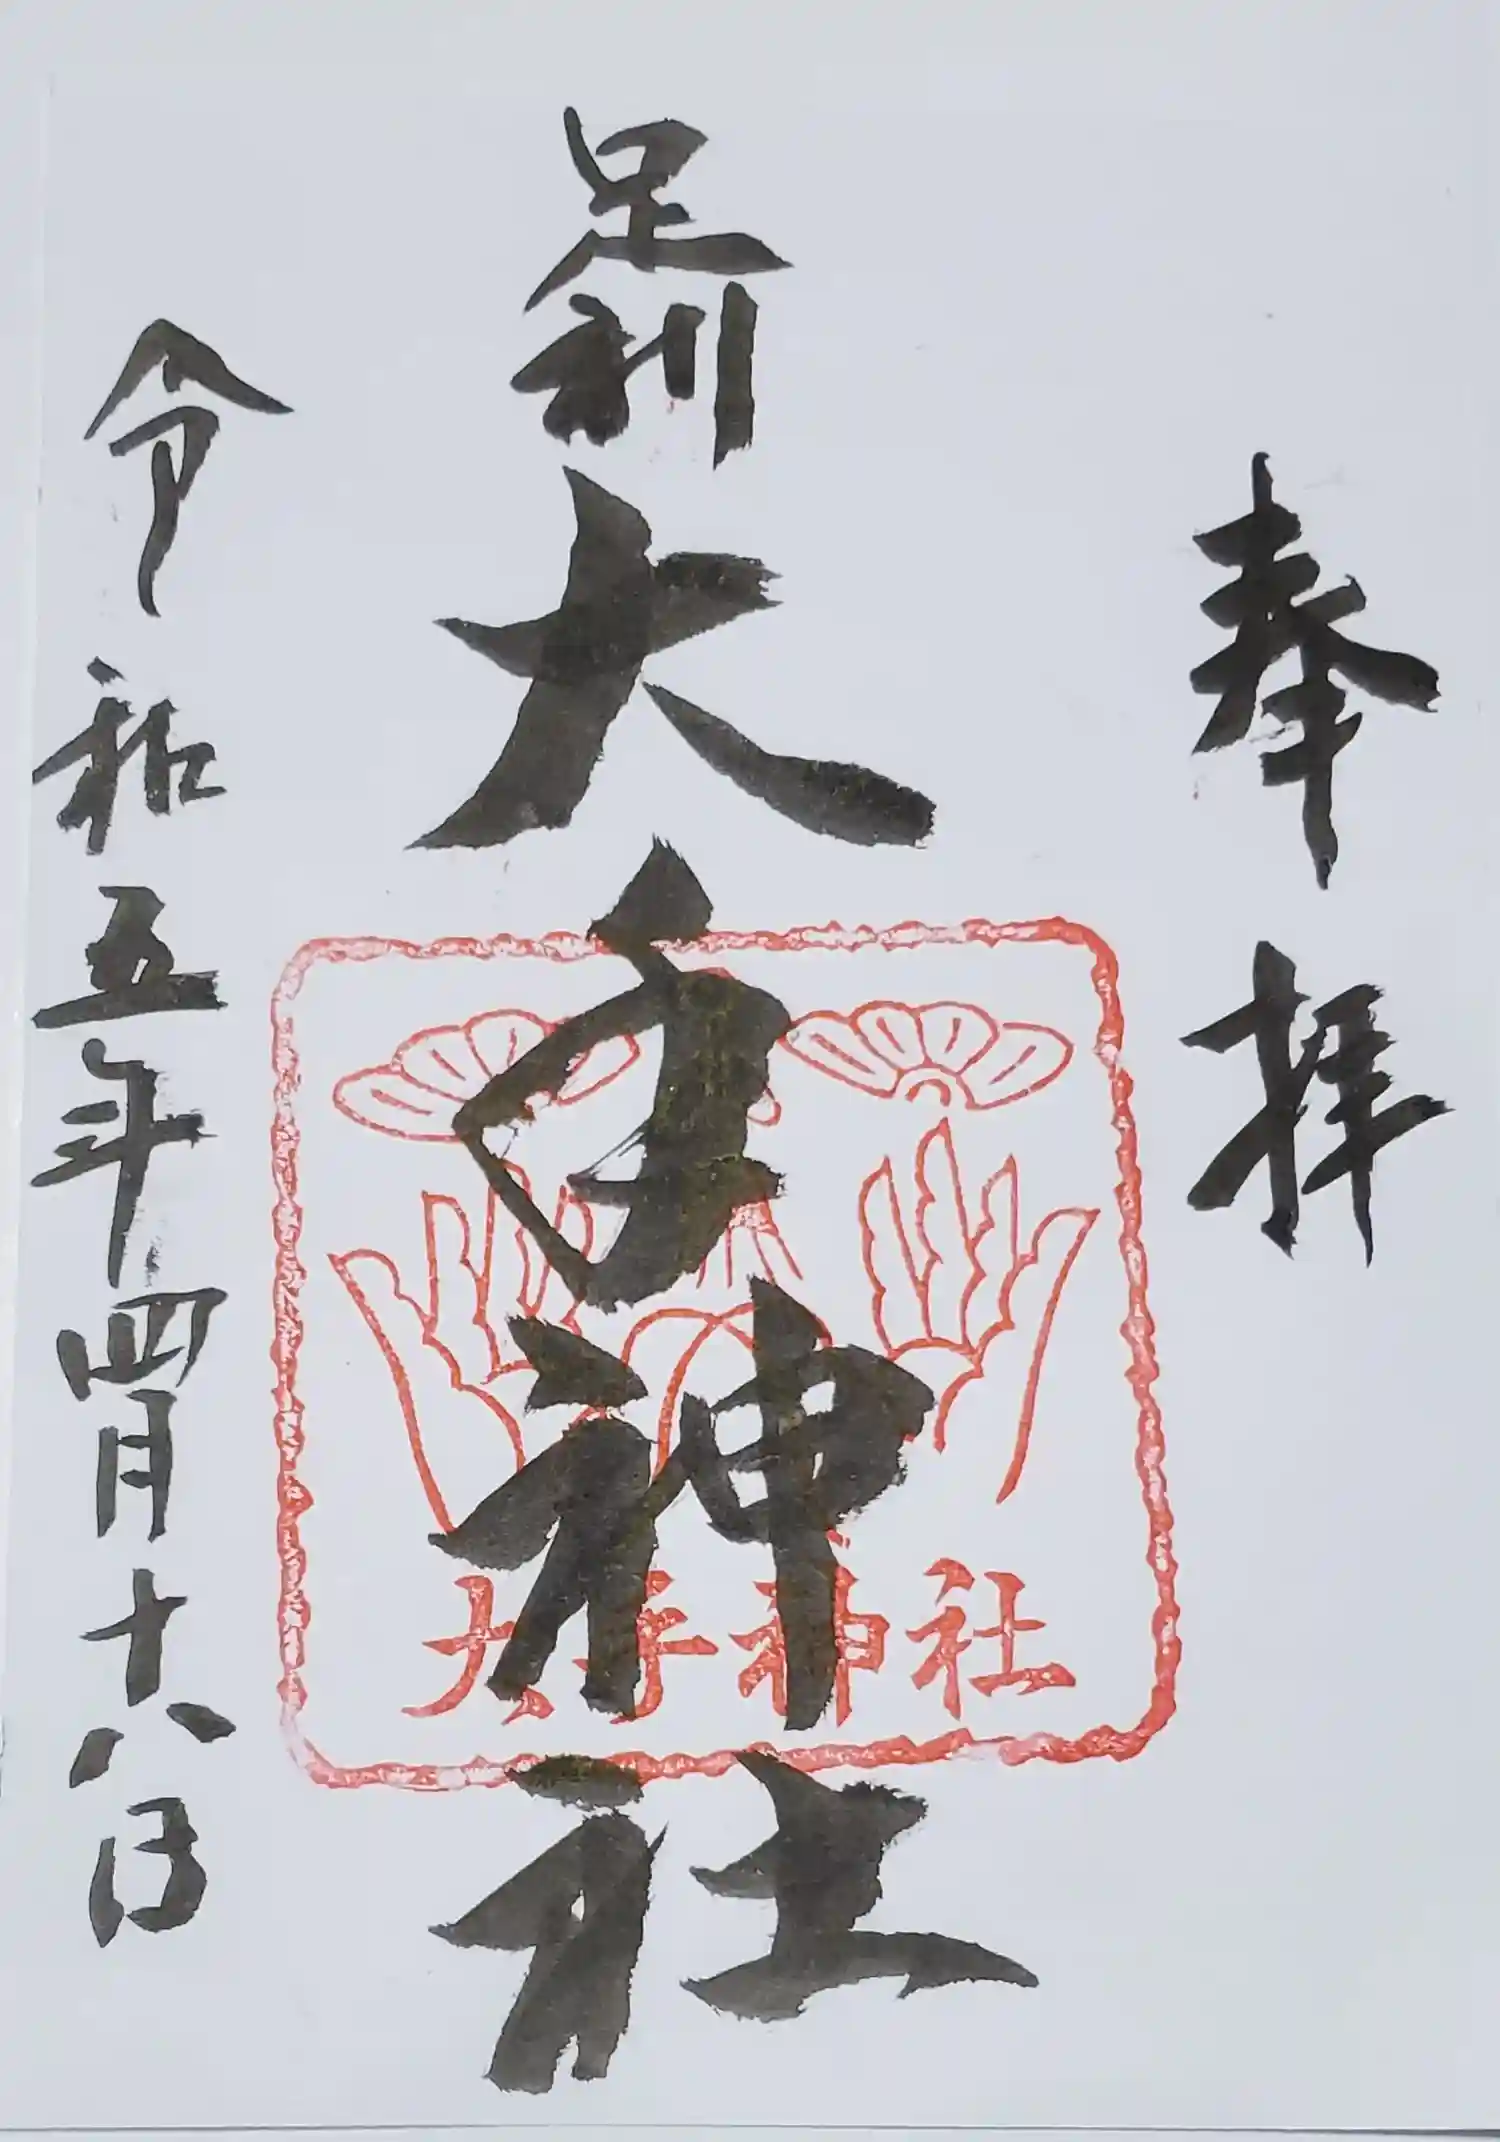 奉拝
足利大手神社
大手神社
令和五年四月十八日